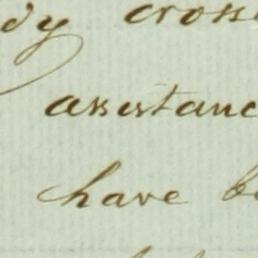 dy cross
assistanc
have b